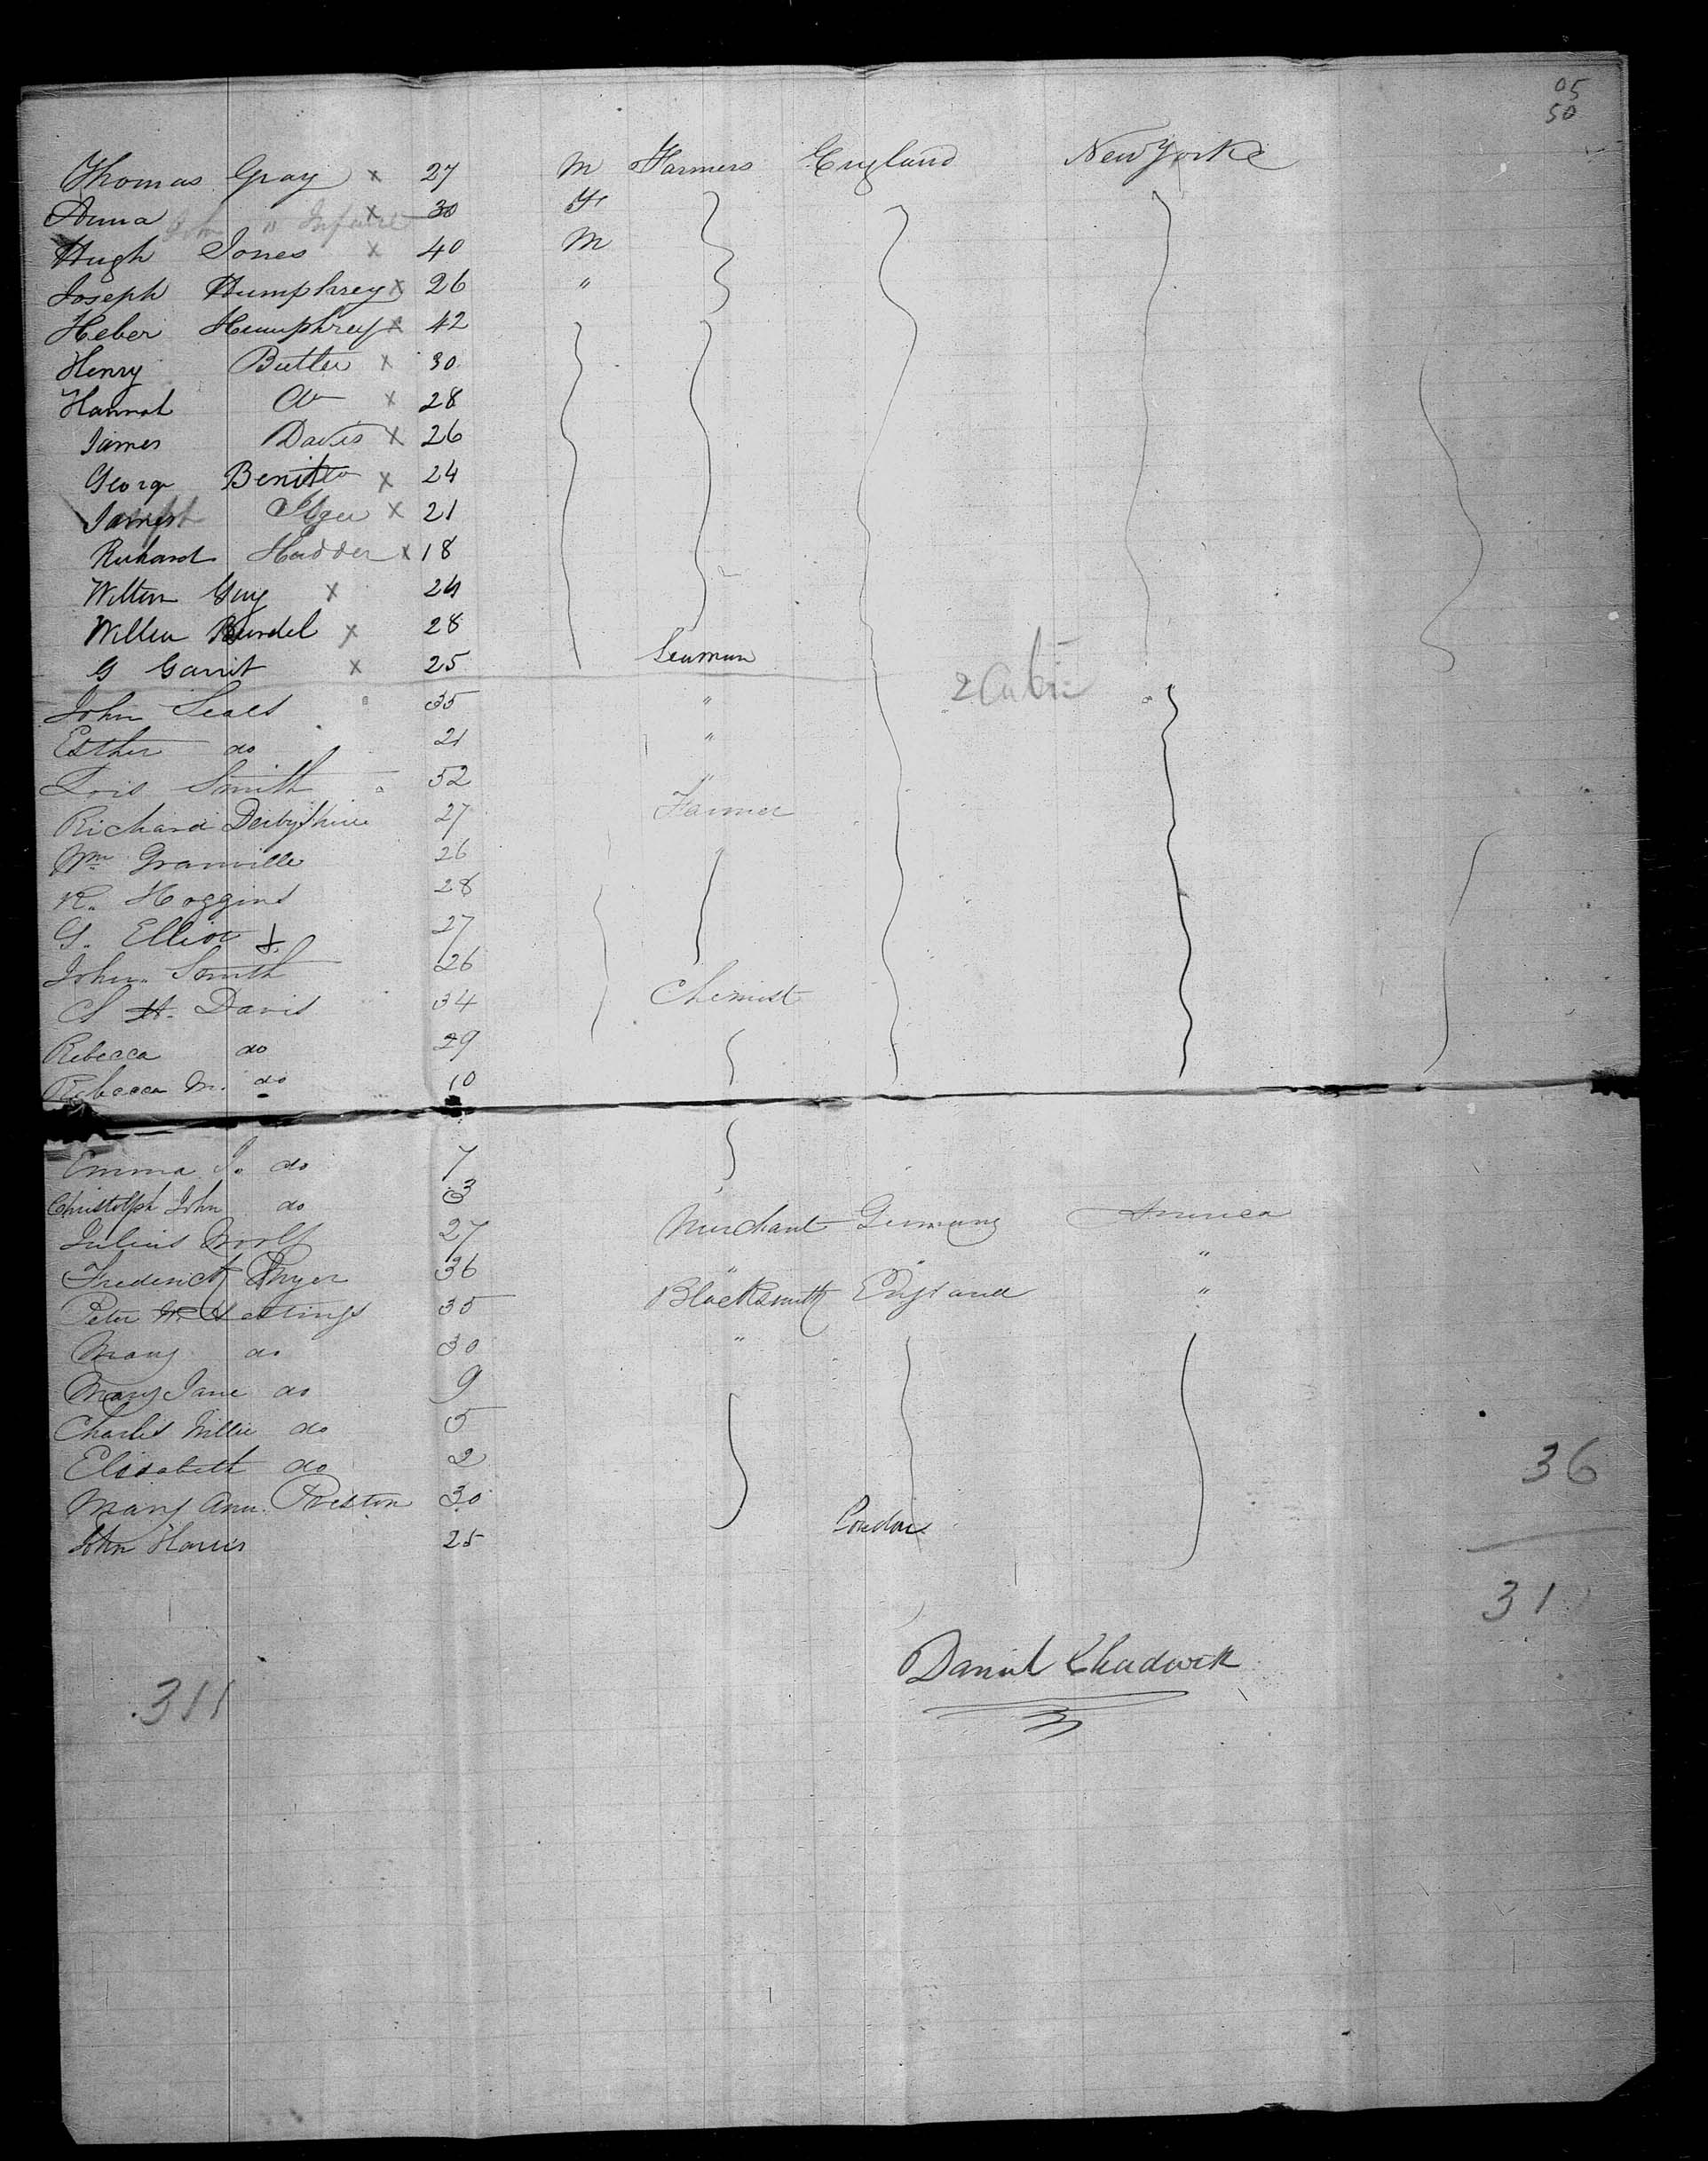 05
50
Thomas Gray x 27 M Farmers England New Yorke
Anna x 30 F
John " Infant
Hugh Jones x 40 M
Joseph Humphrey x 26 "
Heber Humphrey x 42
Henry Butler x 30
Hannah Do x 28
James Davis x 26
George x 24
x 21
Richard Hadder x 18
Guy x 24
x 28
G Garrit x 25 Seaman
2 Cabin
John Seals 35 "
Esther do 21 "
Lois Smith 52 "
Richard Derbyshire 27 Farmer
Wm Granville 26
R. Hoggins 28
G. Elliot x 27
John Smith 26
C H. Davis 34 Chemist
Rebecca do 29
Rebecca M. do 10
Emma J. do 7
Christolph John do 3
Julius Woolf 27 Merchant Germany America
Frederick 36 " " "
Peter Hastings 35 Blacksmith England "
Mary do 30 "
Mary Jane do 9
Charles Willie do 5
Elisabeth do 2
Mary Ann Preston 30
John Harris 25 London
36
31
Daniel Chadwick
311